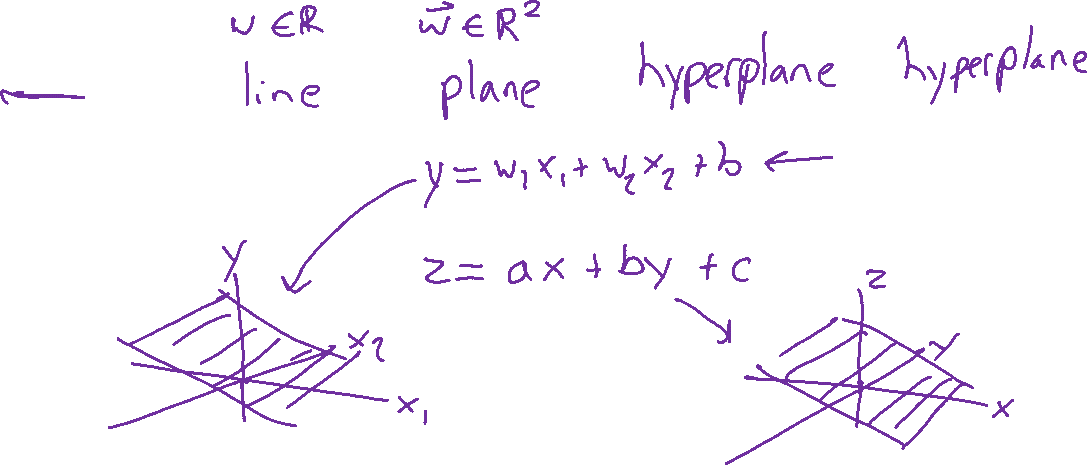 w ∈ ℝ w⃗ ∈ ℝ²
line plane hyperplane hyperplane
y = w₁x₁ + w₂x₂ + b
z = ax + by + c
y
x₂
x₁
z
y
x